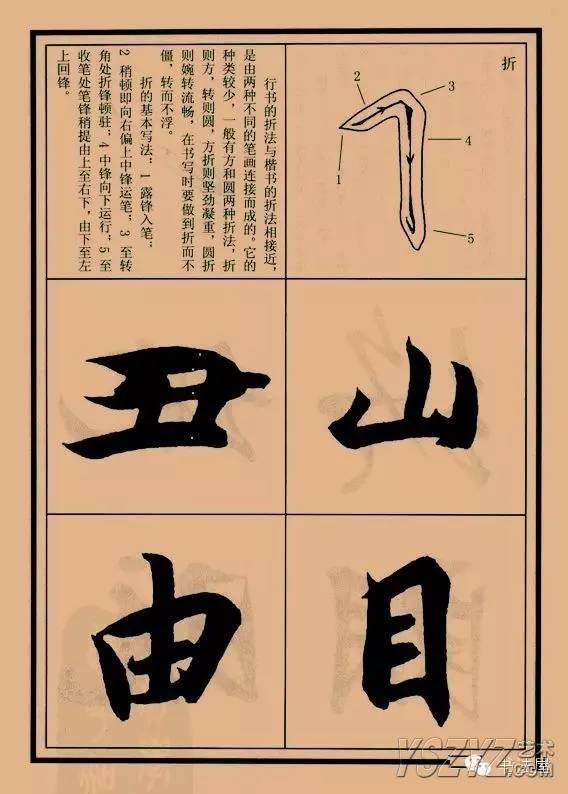 折
1
2
3
4
5
行书的折法与楷书的折法相接近，
是由两种不同的笔画连接而成的。它的
种类较少，一般有方和圆两种折法，折
则方，转则圆，方折则坚劲凝重，圆折
则婉转流畅，在书写时要做到折而不
僵，转而不浮。
折的基本写法：1 露锋入笔；
2 稍顿即向右偏上中锋运笔；3 至转
角处折锋顿驻；4 中锋向下运行；5 至
收笔处笔锋稍提由上至右下，由下至左
上回锋。
山
丑
目
由
YSZYZ艺术
.COM
书法屋